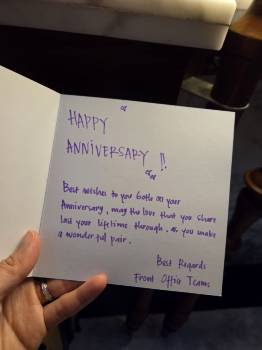 HAPPY
ANNIVERSARY !!
Best wishes to you both on your
Anniversary, may the love that you share
last your lifetime through. as you make
a wonderful pair.
Best Regards
Front Office Teams